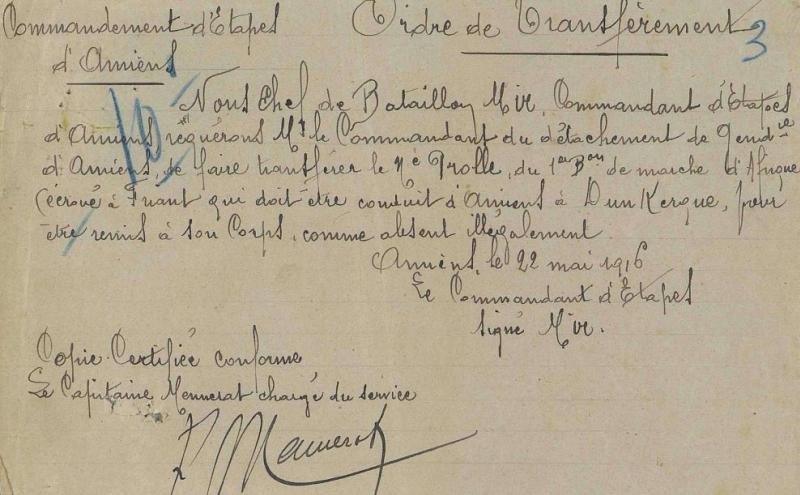 Commandement d'Etapes
d'Amiens
Ordre de Transfèrement
3
Nous Chef de Bataillon Commandant d'Etapes
d'Amiens requérons Mr le Commandant du détachement de Gend^rie
d'Amiens, de faire transférer le nè Trolle, du 1er B^on de marche d'Afrique
(écroué à qui doit être conduit d'Amiens à DunKerque, pour
être remis à son Corps, comme absent illégalement
Amiens, le 22 mai 1916
Le Commandant d'Etapes
signé
Copie Certifiée conforme
Le Capitaine Mennerat chargé du service